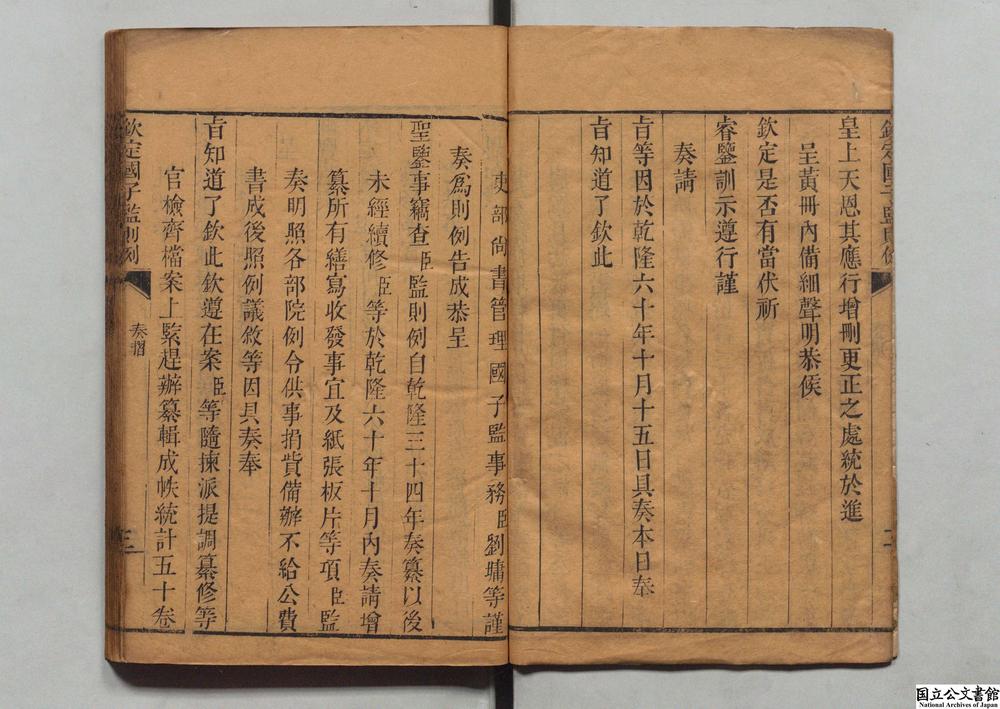 皇上天恩其應行增刪更正之處統於進
呈黃冊內備細聲明恭候
欽定是否有當伏祈
睿鑒訓示遵行謹
奏請
旨等因於乾隆六十年十月十五日具奏本日奉
旨知道了欽此
吏部尚書管理國子監事務臣劉墉等謹
奏爲則例告成恭呈
聖鑒事竊查臣監則例自乾隆三十四年奏纂以後
未經續修臣等於乾隆六十年十月內奏請增
纂所有繕寫收發事宜及紙張板片等項臣監
奏明照各部院例令供事捐貲備辦不給公費
書成後照例議敘等因具奏奉
旨知道了欽此欽遵在案臣等隨揀派提調纂修等
官檢齊檔案上緊趕辦纂輯成帙統計五十卷
欽定國子監則例
奏摺
三
国立公文書館
National Archives of Japan